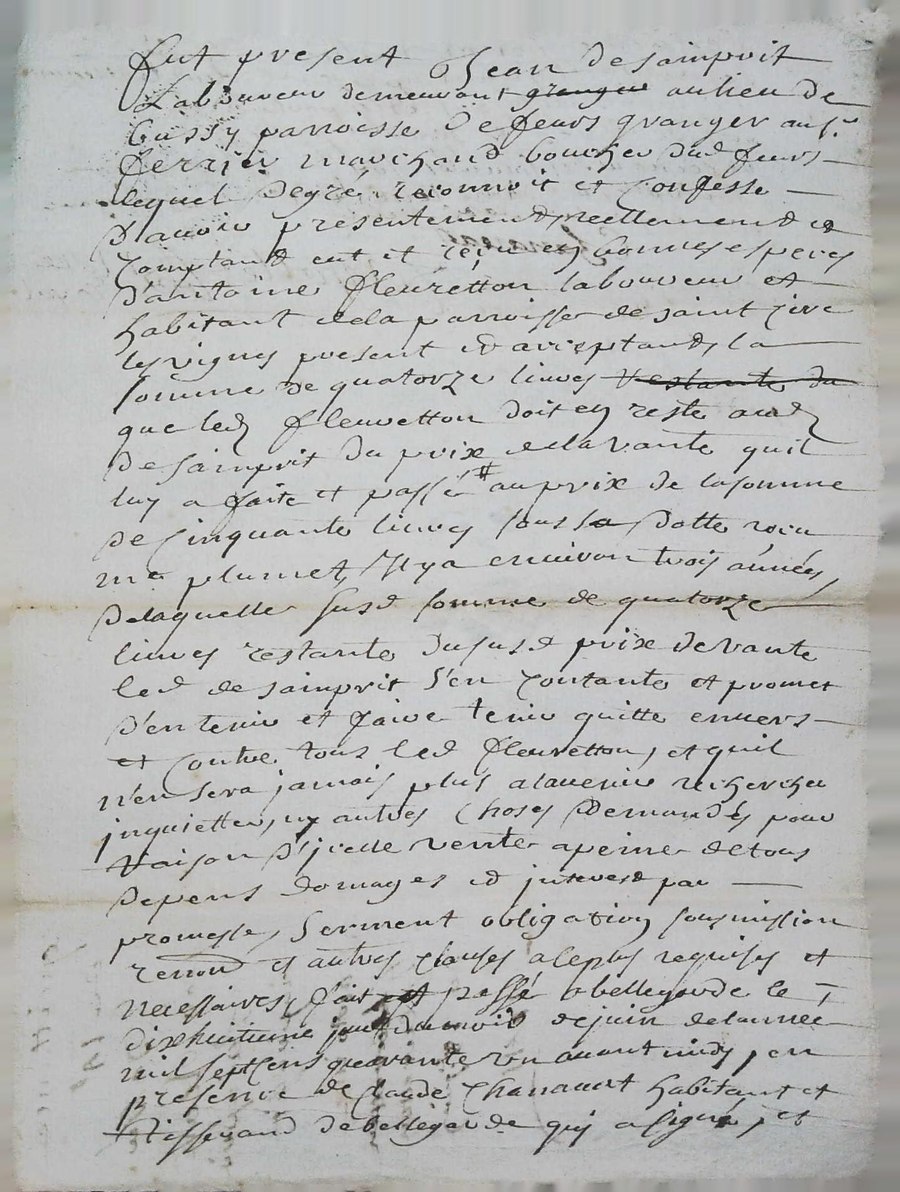 fut present Jean de sainprit
Laboureur demeurant granger au lieu de
bussy parroisse de feurs granger au sr
ferrier marchand boucher dud feurs
lequel de gré reconnoit et confesse
d'avoir presentement reellement et
comptant eut et reçu en bonnes especes
d'antoine fleuretton laboureur et
habitant de la parroisse de saint cire
les vignes present et acceptant, la
somme de quatorze livres restante du
que led fleuretton doit en reste aud
de sainprit du prix de la vante quil
luy a faite et passé # au prix de la somme
de cinquante livres sous sa dotte
me plumet, Il y a environ trois années,
de laquelle susd somme de quatorze
livres restante du susd prix de vante
led de sainprit s'en contante et promet
d'en tenir et faire tenir quitte envers
et contre tous led fleuretton, et quil
n'en sera jamais plus a lavenir rechercher
inquietter, ny autres choses demandés pour
raison d'icelle vente a peine de tous
depens domages et interest par
promesse, serment obligation sousmission
renond et autres clauses a ce plus requises et
necessaires, fait et passé a bellegarde le
dixhuitieme jour du mois de juin de lannee
mil sept cens quarante un avant midy, en
presence de claude chanavat habitant et
tisserand de bellegarde qui a signé, et